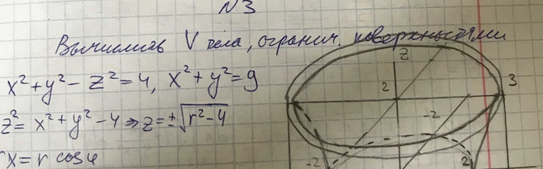 N3
Вычислить V тела, огранич. поверхностями
x² + y² - z² = 4, x² + y² = 9
z² = x² + y² - 4 ⇒ z = ±√(r² - 4)
x = r cos φ
z
2
3
-2
-2
2